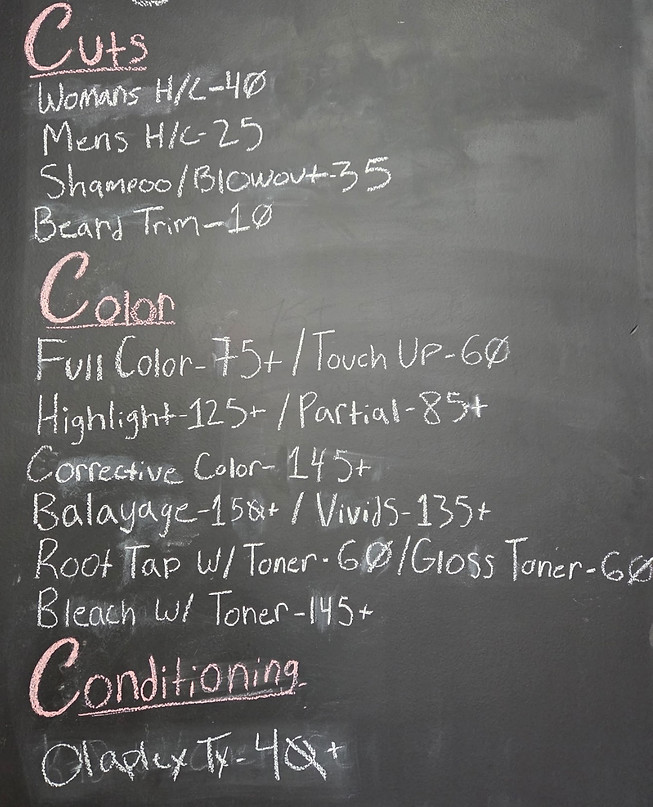 Cuts
Womans H/C-40
Mens H/C-25
Shampoo/Blowout-35
Beard Trim-10
Color
Full Color-75+/Touch UP-60
Highlight-125+/Partial-85+
Corrective Color-145+
Balayage-150+/Vivids-135+
Root Tap W/Toner-60/Gloss Toner-60
Bleach W/ Toner-145+
Conditioning
Olaplex Tx-40+